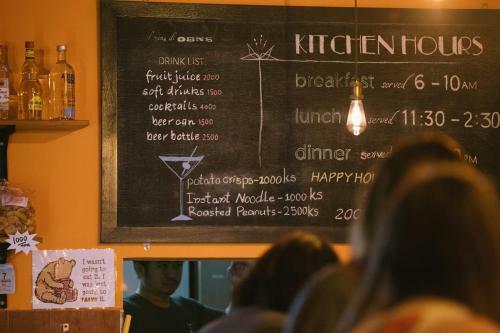 OBNS
KITCHEN HOURS
DRINK LIST
fruit juice 2000
soft drinks 1500
cocktails 4000
beer can 1500
beer bottle 2500
breakfast served 6-10AM
lunch served 11:30-2:30
dinner served PM
potato crisps-1000ks
Instant Noodle -1000 ks
Roasted Peanuts-2500ks
HAPPY HOU
200
1000
I wasn't
going to
eat it, I
was just
going to
TASTE it.